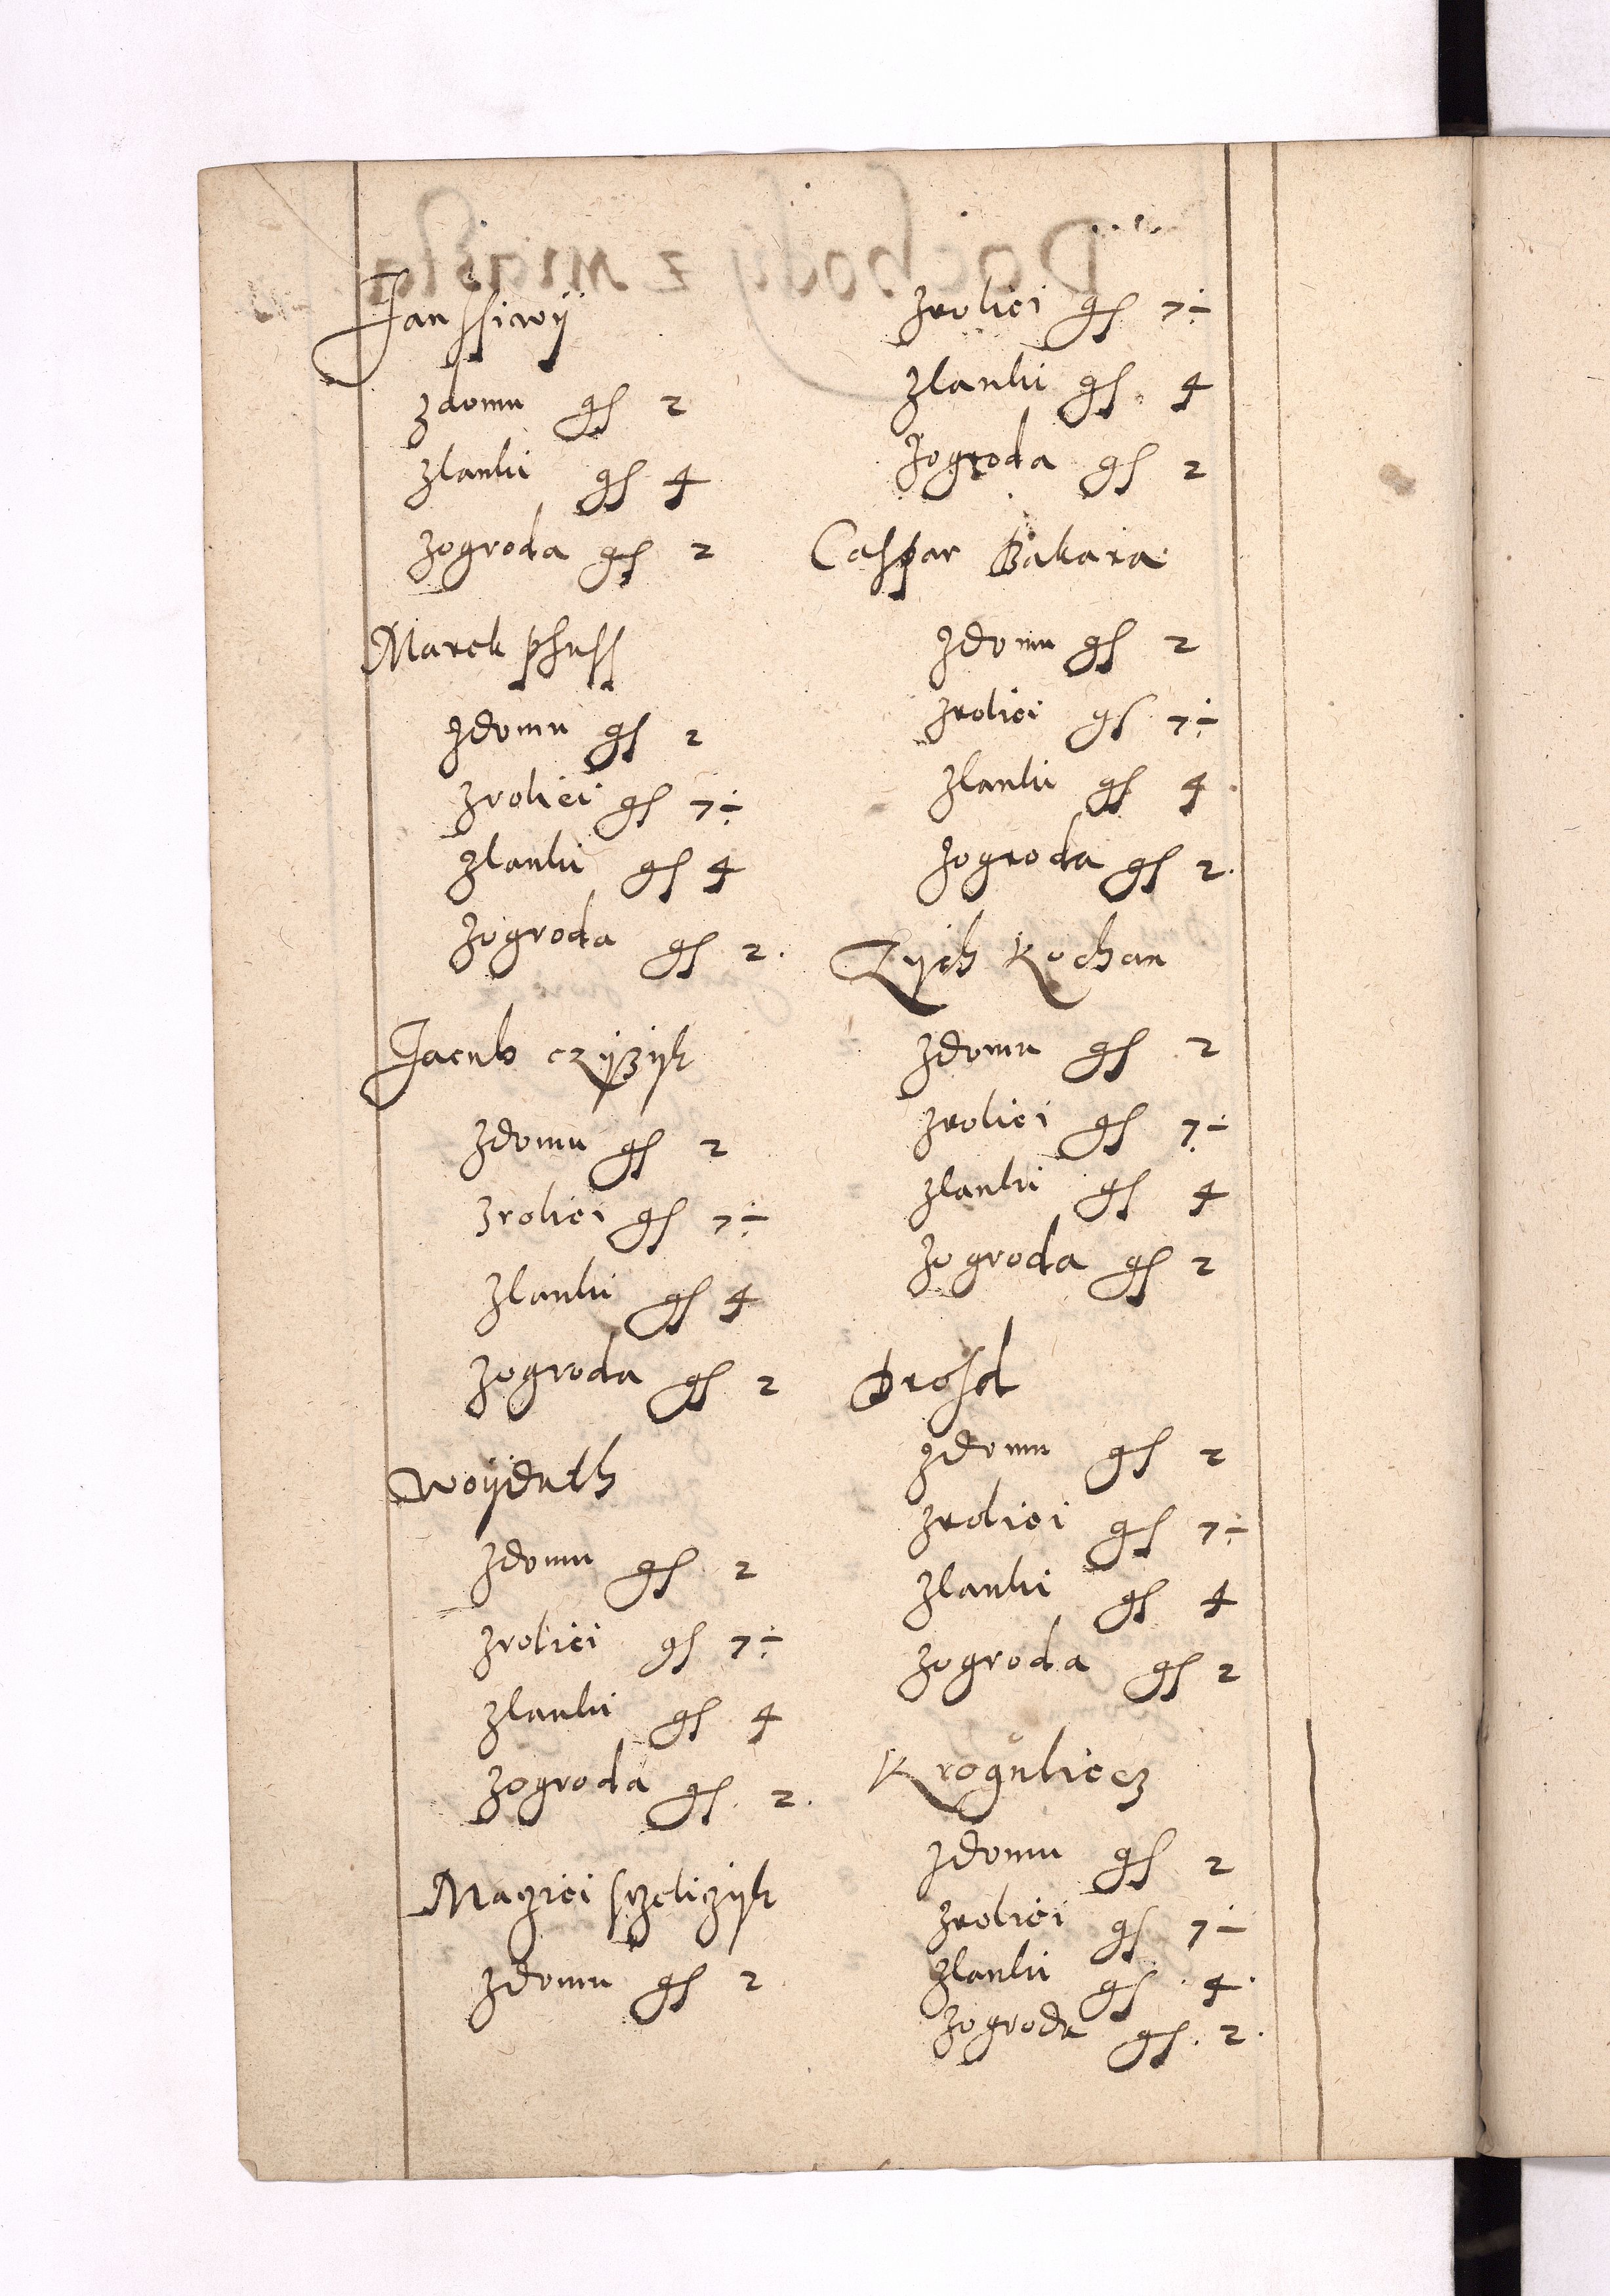 Janssiwÿ
zdomu gs 2
zlanki gs 4
zogroda gs 2
Marek phuss
zdomu gs 2
zroliei gs 7÷
zlanki gs 4
zogroda gs 2.
Jacub czÿzÿk
zdomu gs 2
zroliei gs 7÷
zlanki gs 4
zogroda gs 2
Woÿduth
zdomu gs 2
zroliei gs 7÷
zlanki gs 4
zogroda gs. 2.
Maziei szelizÿk
zdomu gs 2
zroliei gs 7÷
zlanki gs. 4
zogroda gs 2
Caspar Bakara
zdomu gs 2
zroliei gs 7÷
zlanki gs 4.
zogroda gs 2.
Zÿch Kochan
zdomu gs 2
zroliei gs 7÷
zlanki gs 4
zogroda gs 2
Drosd
zdomu gs 2
zroliei gs 7÷
zlanki gs 4
zogroda gs 2
Kroguliecz
zdomu gs 2
zroliei gs 7÷
zlanki gs. 4.
zogroda gs. 2.